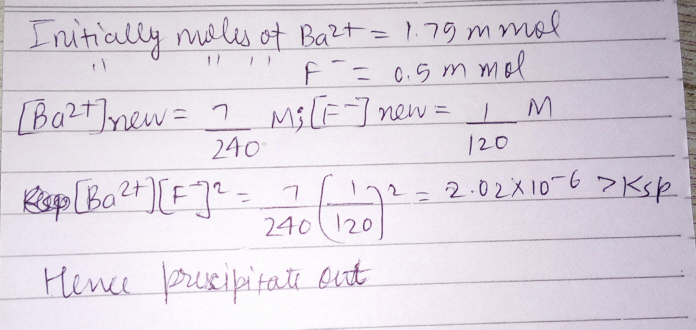 Initially moles of Ba2+ = 1.75 m mol
" " " F- = 0.5 m mol
[Ba2+]new = 7/240 M; [F-] new = 1/120 M
[Ba2+][F-]2 = 7/240 (1/120)2 = 2.02×10-6 > Ksp
Hence precipitate out